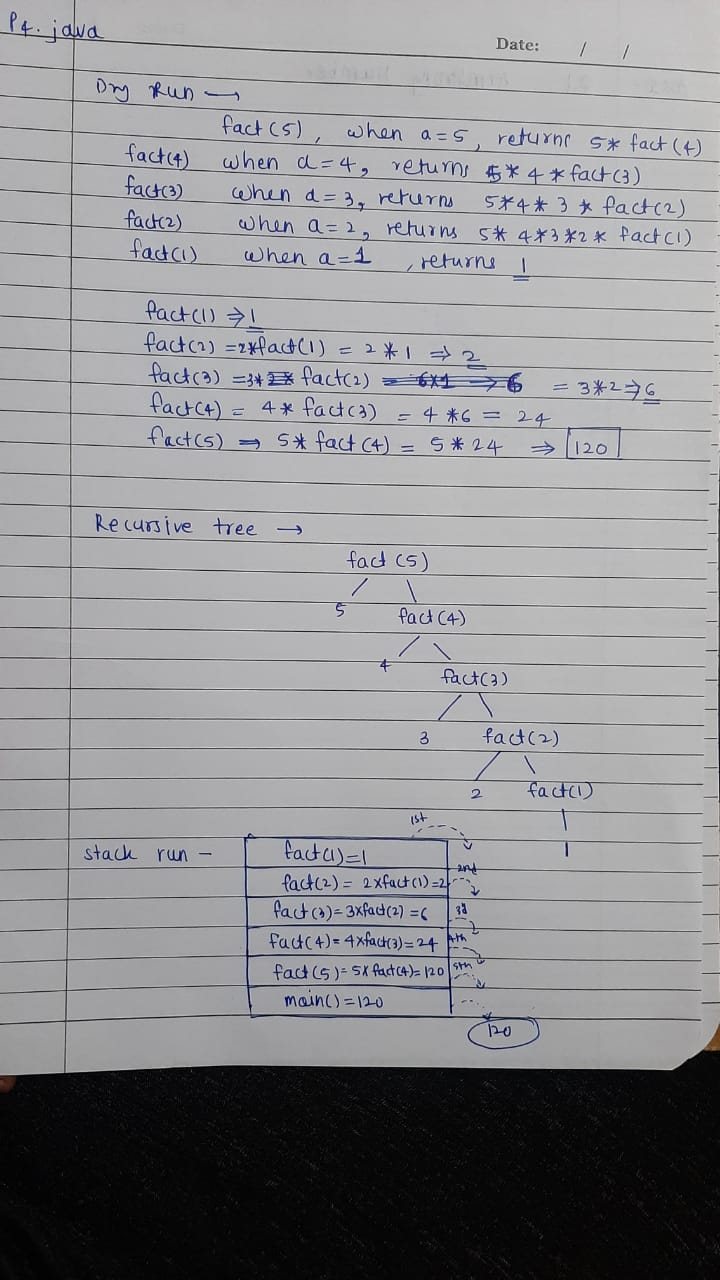 P4.java
Date: / /
Dry Run →
fact(5), when a=5, returns 5* fact(4)
fact(4) when a=4, returns 5* 4 * fact(3)
fact(3) when a=3, returns 5*4* 3 * fact(2)
fact(2) when a=2, returns 5* 4*3*2* fact(1)
fact(1) when a=1, returns 1
fact(1) ⇒ 1
fact(2) =2*fact(1) = 2 * 1 ⇒ 2
fact(3) =3* fact(2) = 6x1 → 6 = 3*2 ⇒ 6
fact(4) = 4* fact(3) = 4 *6 = 24
fact(5) → 5* fact(4) = 5 * 24 ⇒ 120
Recursive tree →
fact (5)
5 fact(4)
4 fact(3)
3 fact(2)
2 fact(1)
1
stack run -
1st
fact(1)=1
2nd
fact(2) = 2xfact(1)=2
fact(3)=3xfact(2) =6 3d
fact(4)=4xfact(3)=24 4th
fact(5)=5xfact(4)=120 5th
main()=120
120